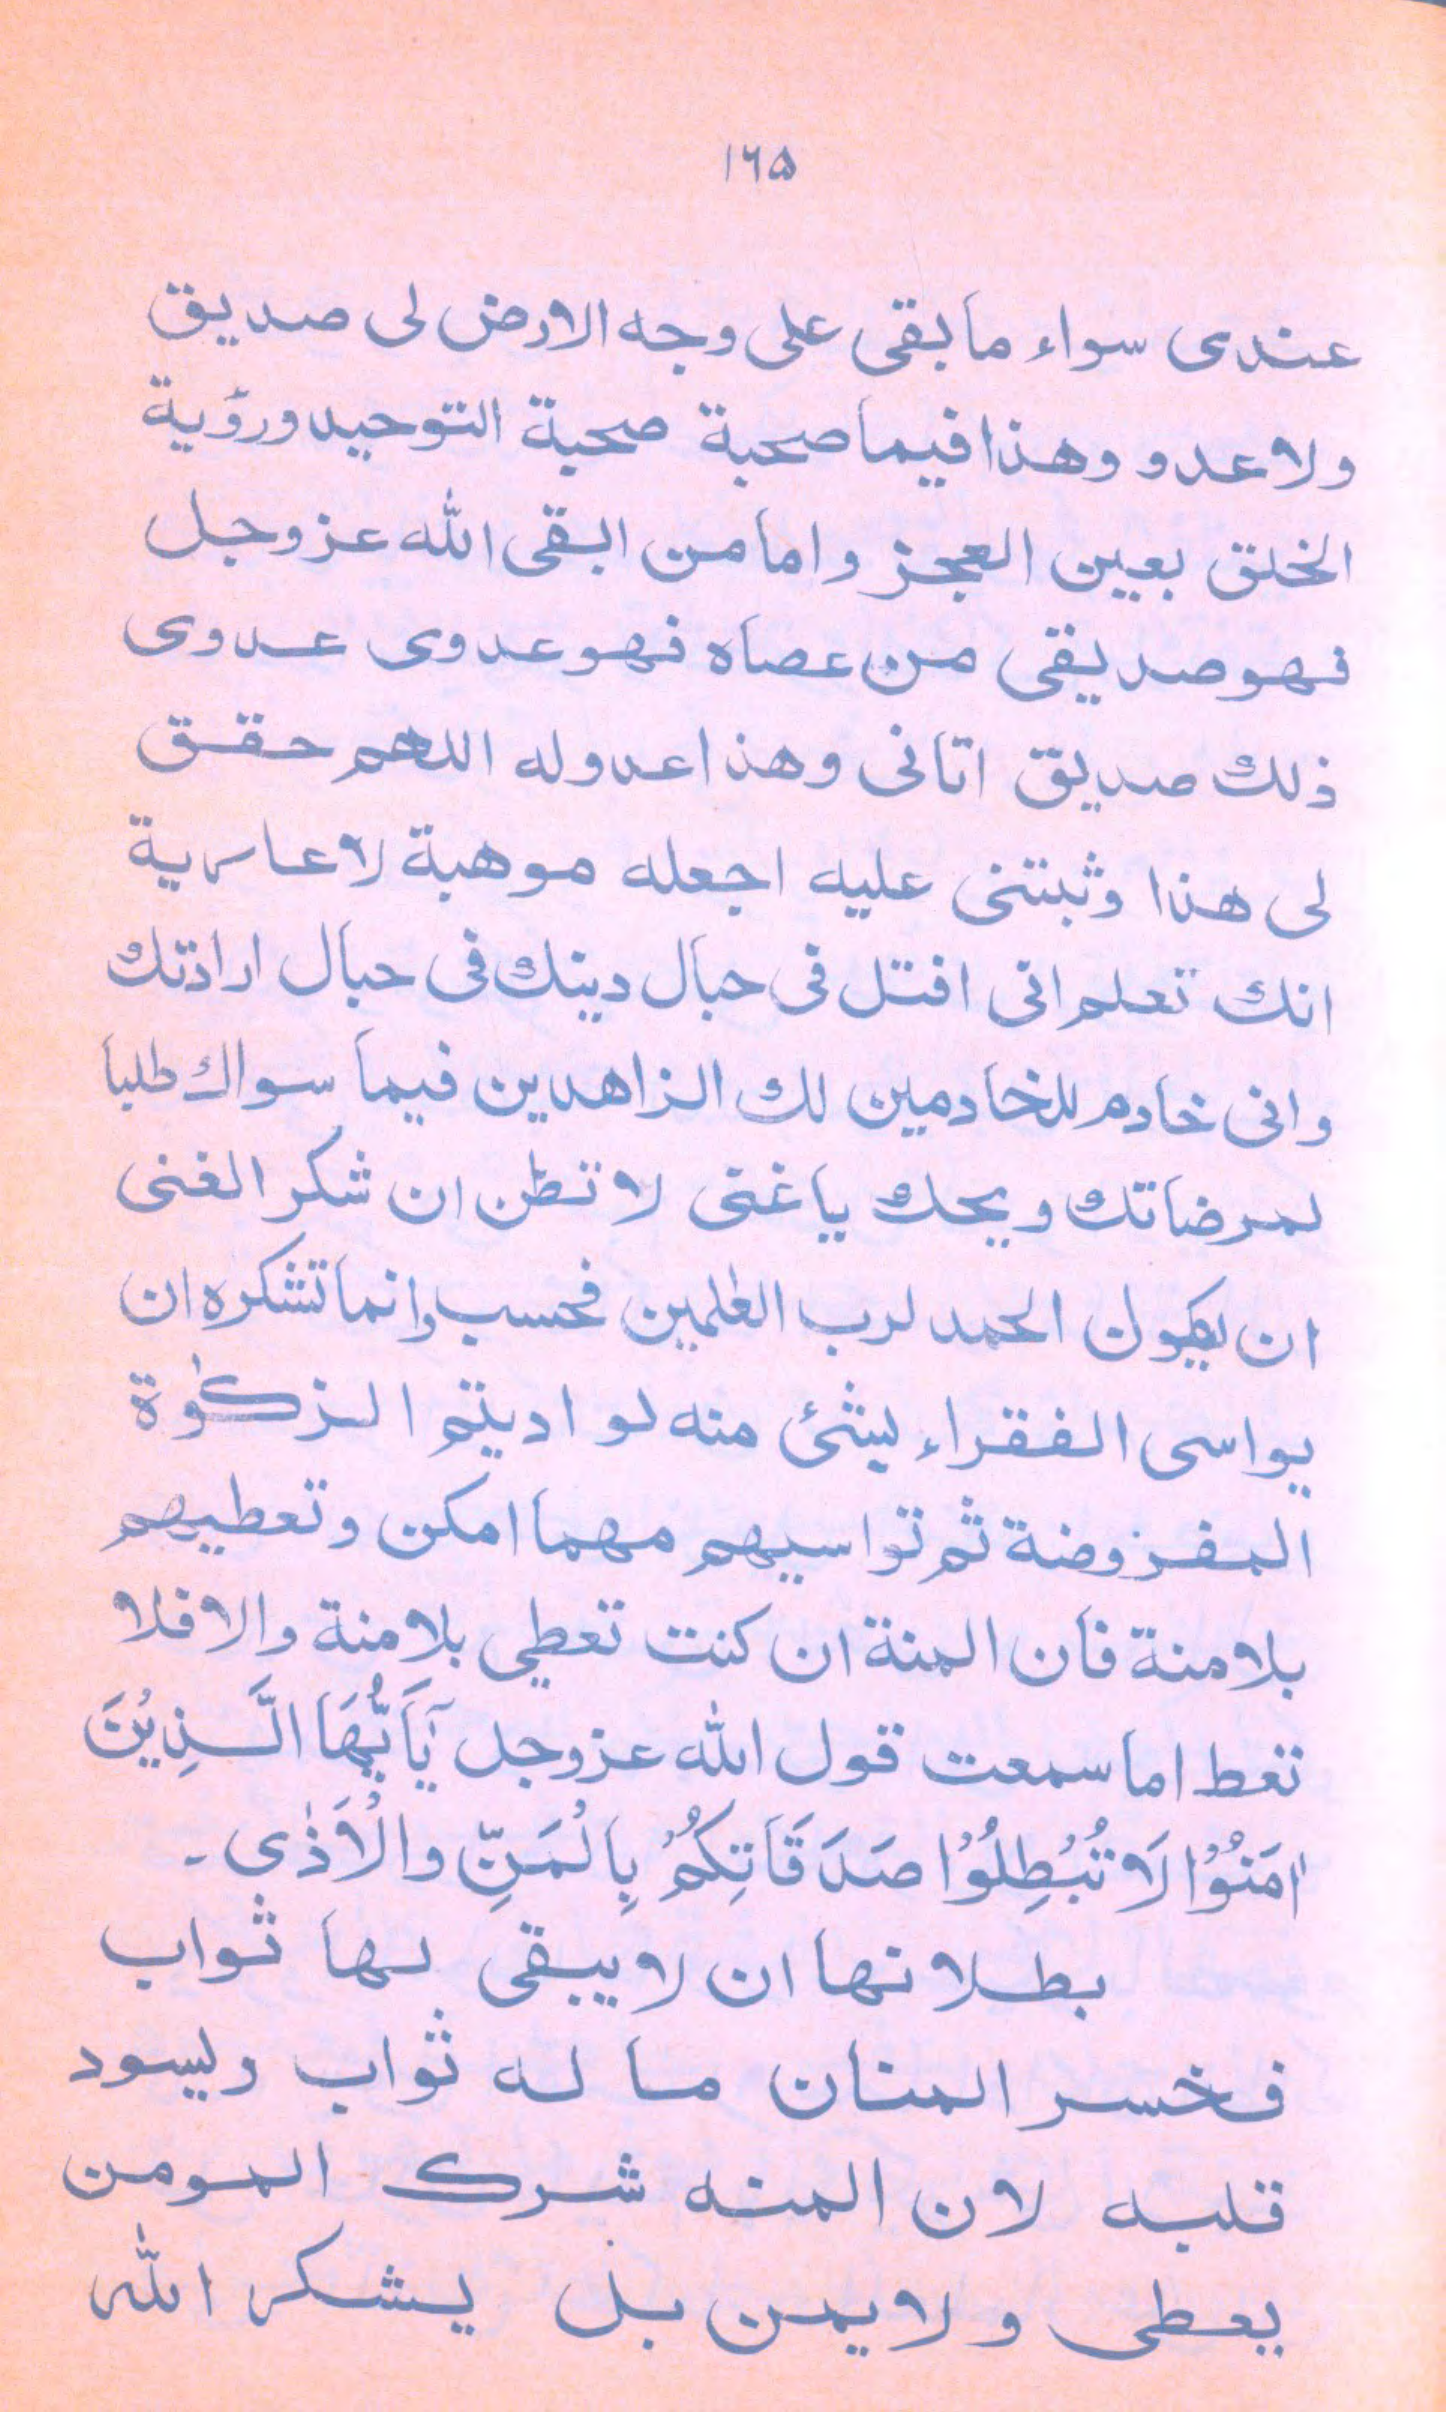 ۱۶۵
عندى سواء ما بقى على وجه الارض لى صديق
ولا عدو وهذا فيما صحبة صحبة التوحيد ورؤية
الخلق بعين العجز واما من اتبقى الله عزوجل
فهو صديقى من عصاه فهو عدوى عدوى
ذلك صديق اتانى وهذا عدوله اللهم حقق
لى هذا وثبتنى عليه اجعله موهبة لا عارية
انك تعلم انى افتل فى حبال دينك فى حبال ارادتك
وانى خادم للخادمين لك الزاهدين فيما سواك طلبا
لمرضاتك ويحك يا غنى لا تظن ان شكر الغنى
ان يكون الحمد لرب العلمين فحسب وانما تشكره ان
يواسى الفقراء بشئ منه لو اديتم الزكوٰة
المفروضة ثم تواسيهم مهما امكن وتعطيهم
بلامنة فان المنة ان كنت تعطي بلامنة والافلا
تعط اما سمعت قول الله عزوجل يَآ اَيُّهَا الَّذِيْنَ
اٰمَنُوْا لَا تُبْطِلُوْا صَدَقَاتِكُمْ بِالْمَنِّ والْاَذٰى ۔
بطلانها ان لا يبقى لها ثواب
فخسر المنان ما له ثواب وليسود
قلبه لان المنه شرك المومن
يعطى ولا يمن بل يشكر الله